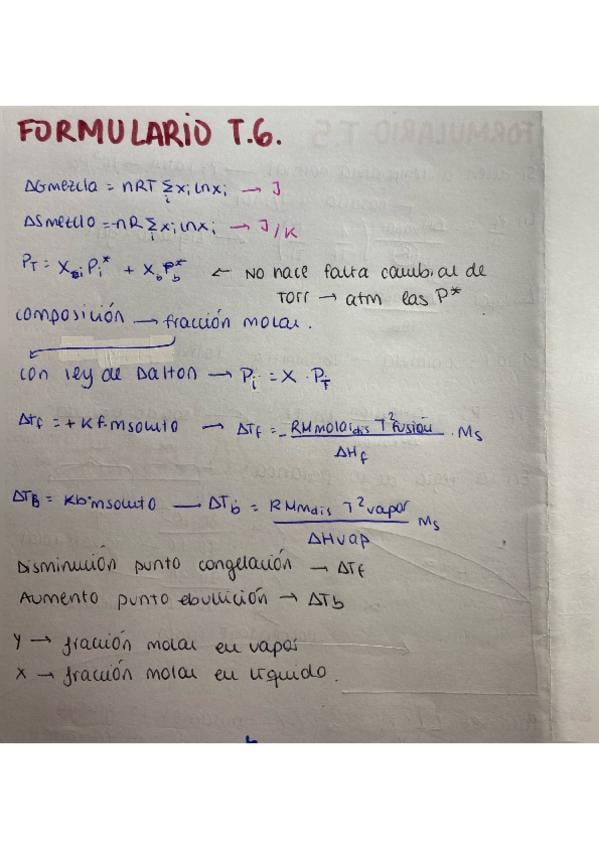 FORMULARIO T.6.
ΔGmezcla = nRT Σi xi ln xi → J
ΔSmezcla = -nR Σi xi ln xi → J/K
PT = Xi Pi* + Xb Pb* ← NO hace falta cambiar de
Torr → atm las P*
composición → fracción molar.
con ley de Dalton → Pi = X · PT
ΔTf = + Kf · msoluto → ΔTf = - RMmolar dis T² fusión / ΔHf · Ms
ΔTB = Kb · msoluto → ΔTb = RMm dis T² vapor / ΔHvap Ms
Disminución punto congelación → ΔTf
Aumento punto ebullición → ΔTb
Y → fracción molar en vapor
X → fracción molar en líquido.